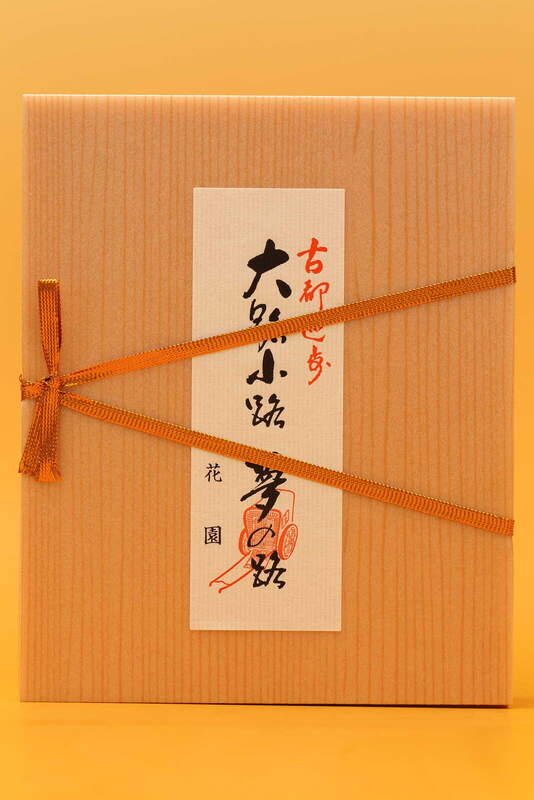 古都巡歩
大路小路 夢の路
花園